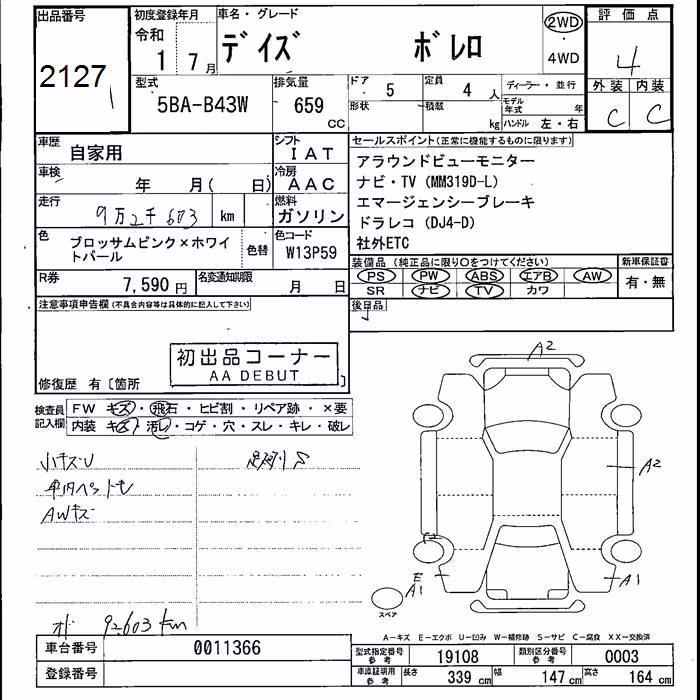 出品番号
2127
初度登録年月
令和
1年 7月
車名・グレード
デイズ ボレロ
2WD
・
4WD
評価点
4
外装 内装
C C
型式
5BA-B43W
排気量
659 CC
ドア
5
定員
4人
形状
積載
kg
ディーラー・並行
モデル年式 年
ハンドル 左・右
車歴
自家用
シフト
IAT
車検
年 月( 日)
冷房
AAC
走行
9万2千603 km
燃料
ガソリン
色
ブロッサムピンク×ホワイトパール
色替
色コード
W13P59
R券
7,590円
名変通知期限
月 日
セールスポイント(正常に機能するものに限ります)
アラウンドビューモニター
ナビ・TV(MM319D-L)
エマージェンシーブレーキ
ドラレコ(DJ4-D)
社外ETC
装備品(純正品に限り○をつけてください)
新車保証書
PS PW ABS エアB AW
SR ナビ TV カワ
有・無
後日品
注意事項申告欄(不具合内容等は具体的に記入して下さい)
初出品コーナー
AA DEBUT
修復歴 有〔箇所 〕
検査員記入欄
FW キズ・飛石・ヒビ割・リペア跡・×要
内装 キズ・汚レ・コゲ・穴・スレ・キレ・破レ
小キズU
足廻りS
車内ペットモ
AWキズ
オド 92603km
A2
A2
E
A1
A1
スペア
A-キズ E-エクボ U-凹み W-補修跡 S-サビ C-腐食 XX-交換済
車台番号
0011366
登録番号
型式指定番号 参考
19108
類別区分番号 参考
0003
車庫証明用 参考
長さ 339 cm
幅 147 cm
高さ 164 cm